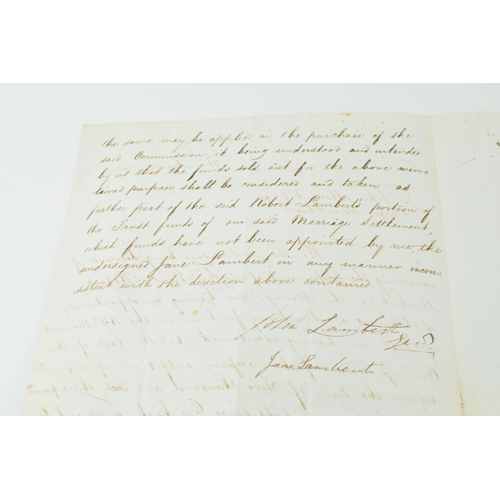 the same may be applied in the purchase of the
said Commission it being understood and intended
by us that the funds sold out for the above men-
tioned purpose shall be considered and taken as
further part of the said Robert Lambert's portion of
the Trust funds of our said Marriage Settlement,
which funds have not been appointed by me the
undersigned Jane Lambert in any manner incon-
sistent with the direction above contained
John Lambert
Jane Lambert